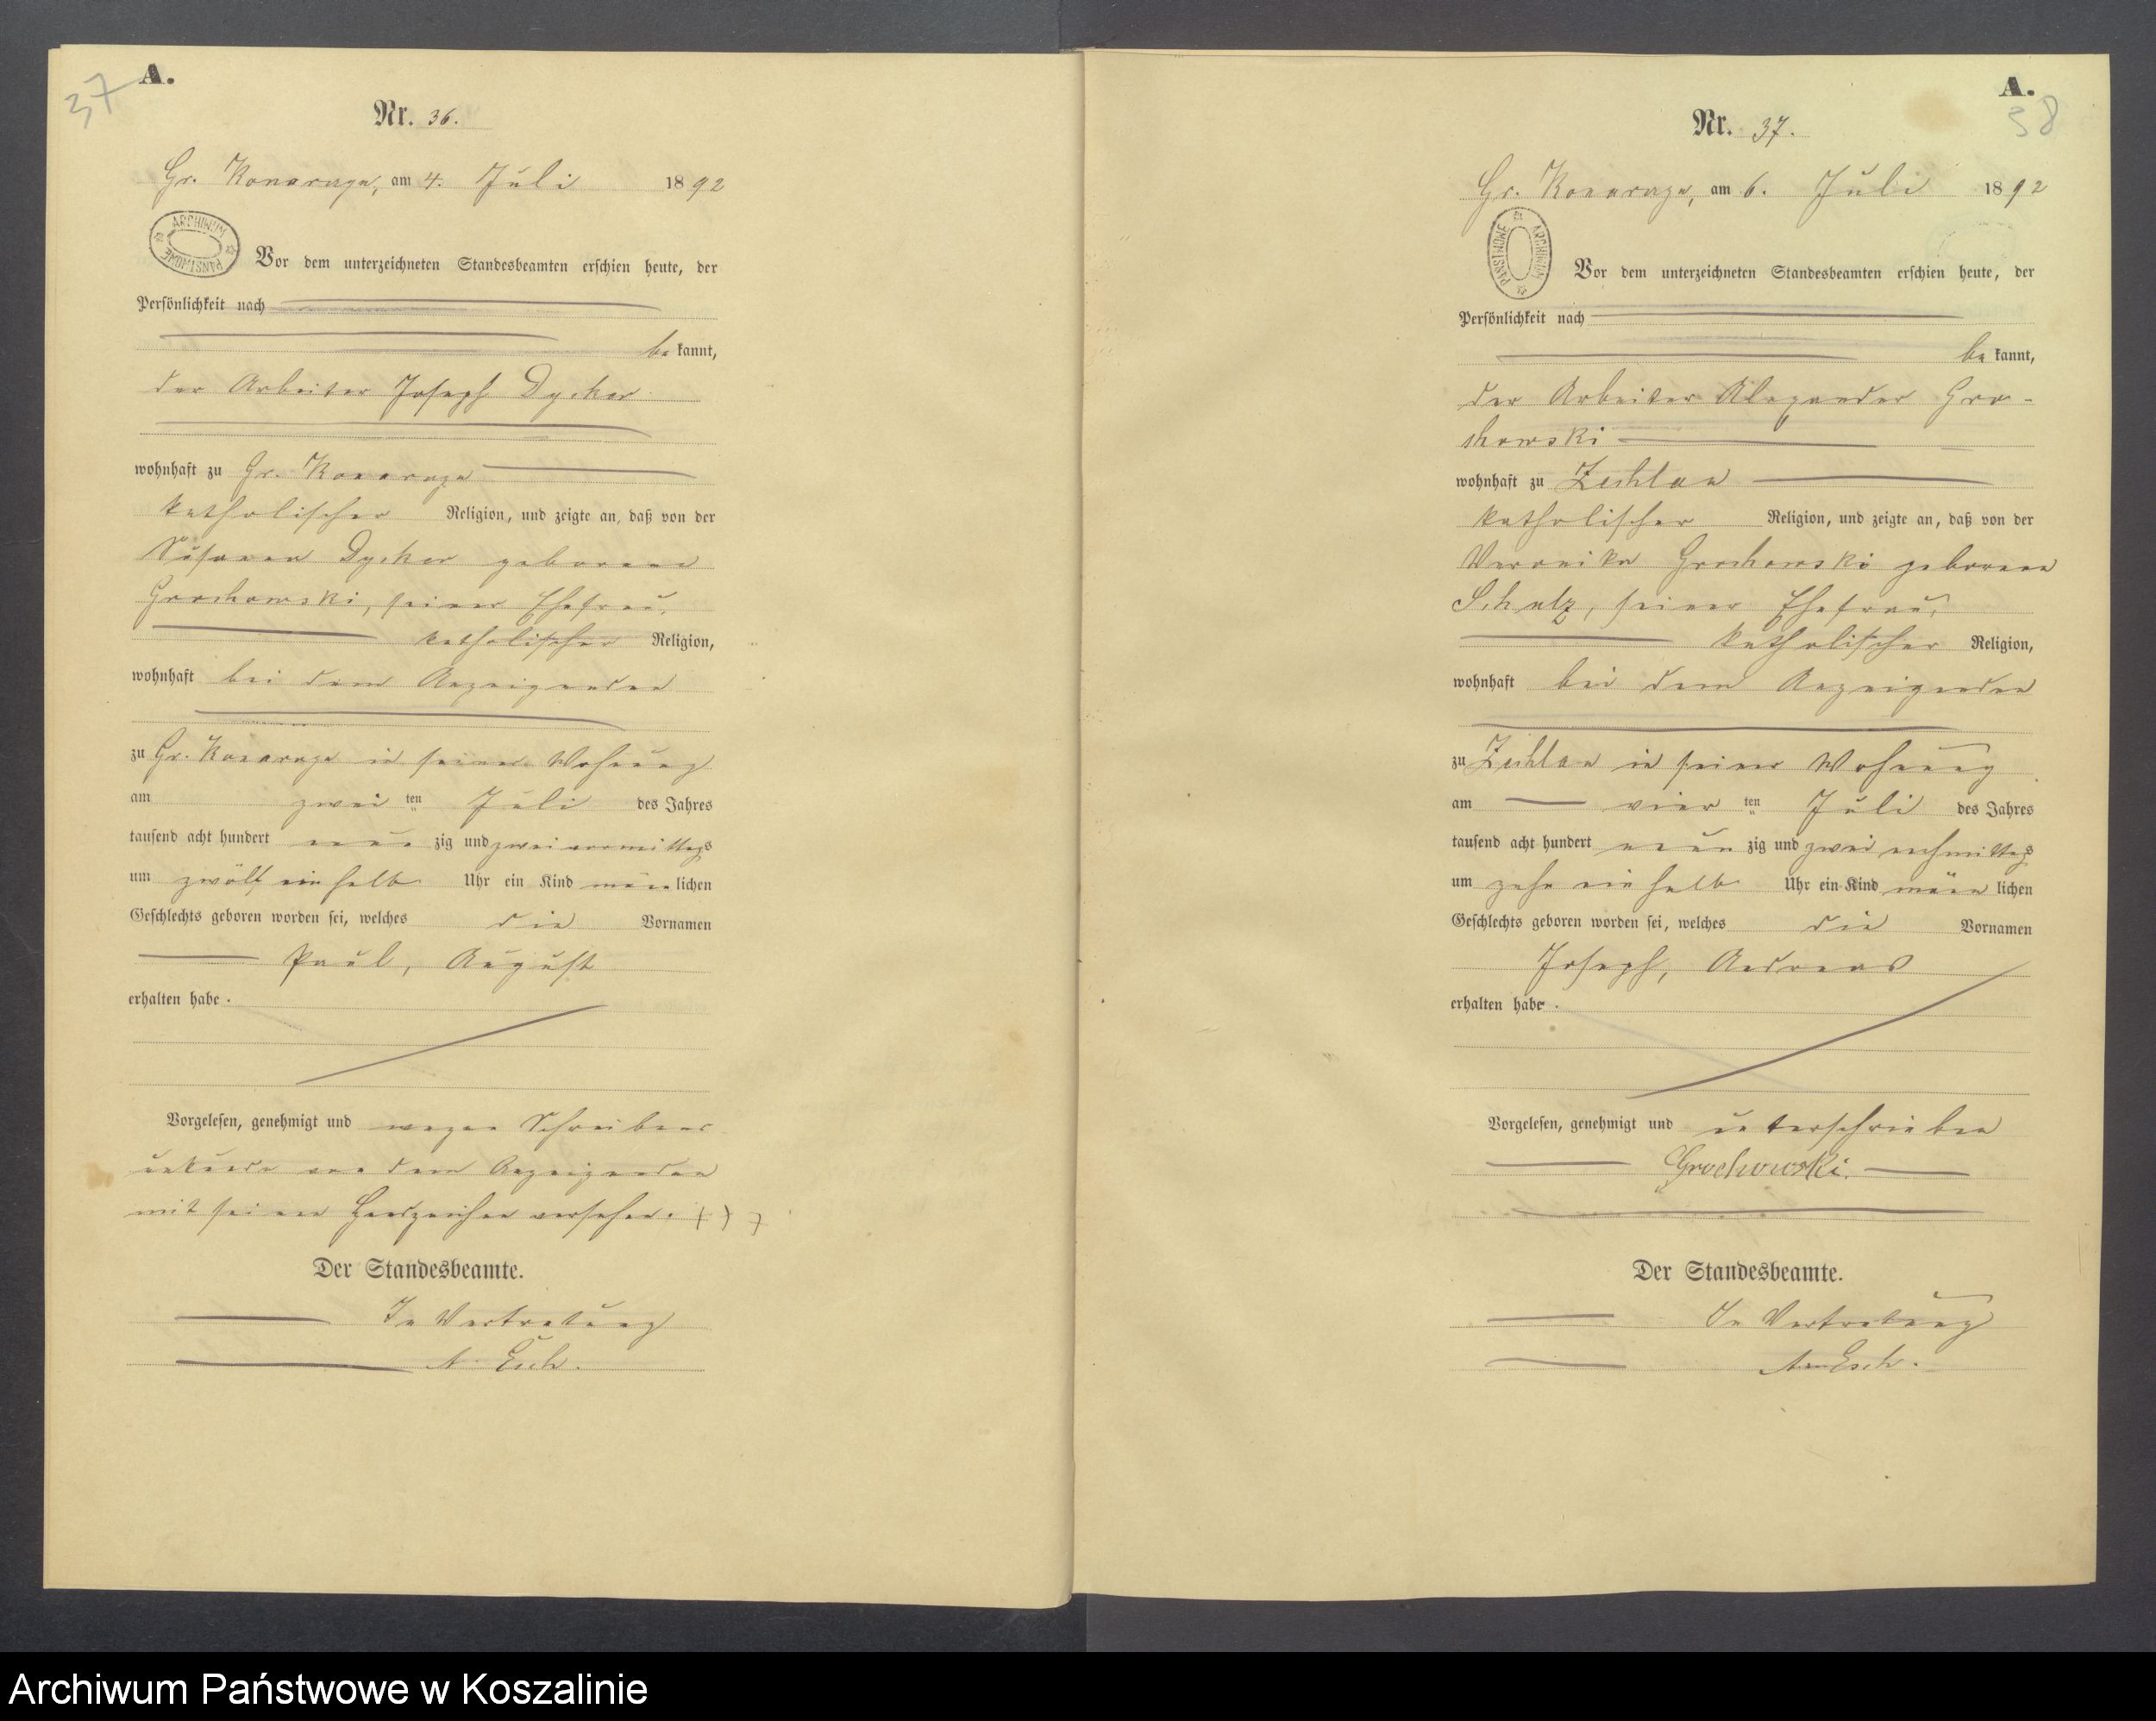 37
A.
Nr. 36.
Gr. Konarczyn, am 4. Juli 1892
ARCHIWUM PAŃSTWOWE
Vor dem unterzeichneten Standesbeamten erschien heute, der
Persönlichkeit nach
be kannt,
der Arbeiter Joseph Dycker
wohnhaft zu Gr. Konarczyn
katholischer Religion, und zeigte an, daß von der
Susanna Dycker geborene
Grochowski, seiner Ehefrau,
katholischer Religion,
wohnhaft bei dem Anzeigenden
zu Gr. Konarczyn in seiner Wohnung
am zwei ten Juli des Jahres
tausend acht hundert neun zig und zwei vormittags
um zwölf ein halb Uhr ein Kind männlichen
Geschlechts geboren worden sei, welches die Vornamen
Paul, August
erhalten habe.
Vorgelesen, genehmigt und wegen Schreibens
unkunde von dem Anzeigenden
mit seinen Handzeichen versehen. +++
Der Standesbeamte.
In Vertretung
A. Esch.
A.
38
Nr. 37.
Gr. Konarczyn, am 6. Juli 1892
ARCHIWUM PAŃSTWOWE
Vor dem unterzeichneten Standesbeamten erschien heute, der
Persönlichkeit nach
be kannt,
der Arbeiter Alexander Gro-
chowski
wohnhaft zu Zechlau
katholischer Religion, und zeigte an, daß von der
Veronika Grochowski geborene
Schulz, seiner Ehefrau,
katholischer Religion,
wohnhaft bei dem Anzeigenden
zu Zechlau in seiner Wohnung
am vier ten Juli des Jahres
tausend acht hundert neun zig und zwei nachmittags
um zehn ein halb Uhr ein Kind männ lichen
Geschlechts geboren worden sei, welches die Vornamen
Joseph, Andreas
erhalten habe.
Vorgelesen, genehmigt und unterschrieben
Grochowski.
Der Standesbeamte.
In Vertretung
Esch.
Archiwum Państwowe w Koszalinie